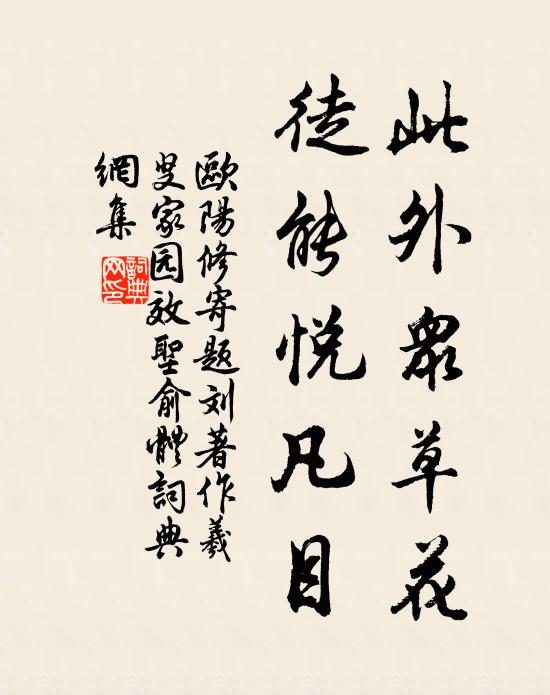 此外眾草花
徒能悅凡目
歐陽修寄題刘著作羲
叟家园效聖俞體詞典
網集
詞典網印